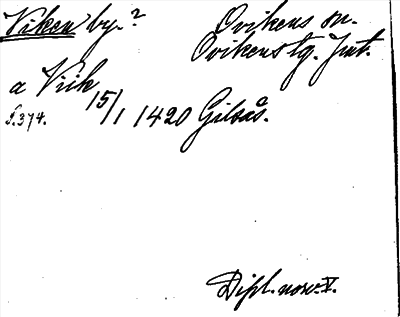 Viken by.? Ovikens sn.
Ovikens tg. Jmt.
a Viik 15/1 1420 Gilsås.
s. 374.
Dipl. norv. V.